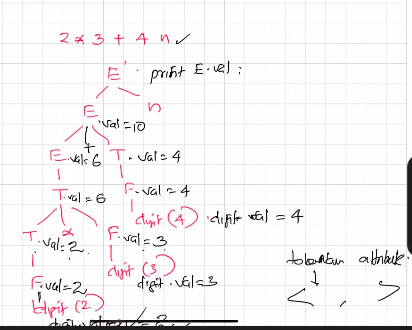 2 * 3 + 4 n ✓
E' . print E.val ;
E .val = 10 n
E .val = 6 + T .val = 4
T .val = 6 F .val = 4
digit (4) .digit val = 4
T .val = 2 * F .val = 3
digit (3) digit .val = 3
F .val = 2
digit (2)
attribute
< , >